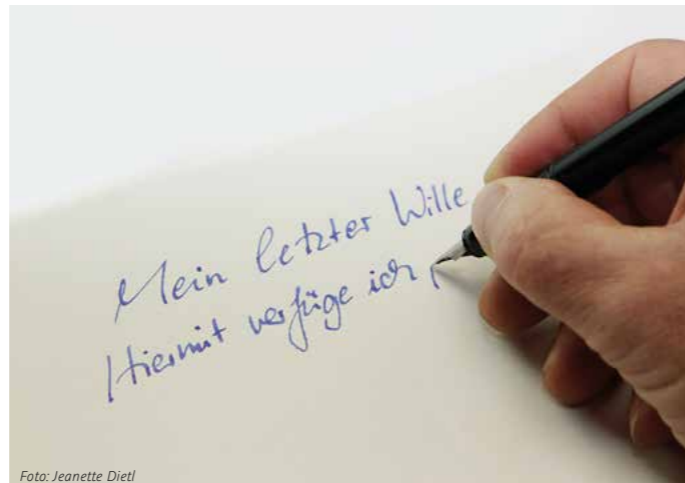 Mein letzter Wille
Hiermit verfüge ich,
Foto: Jeanette Dietl